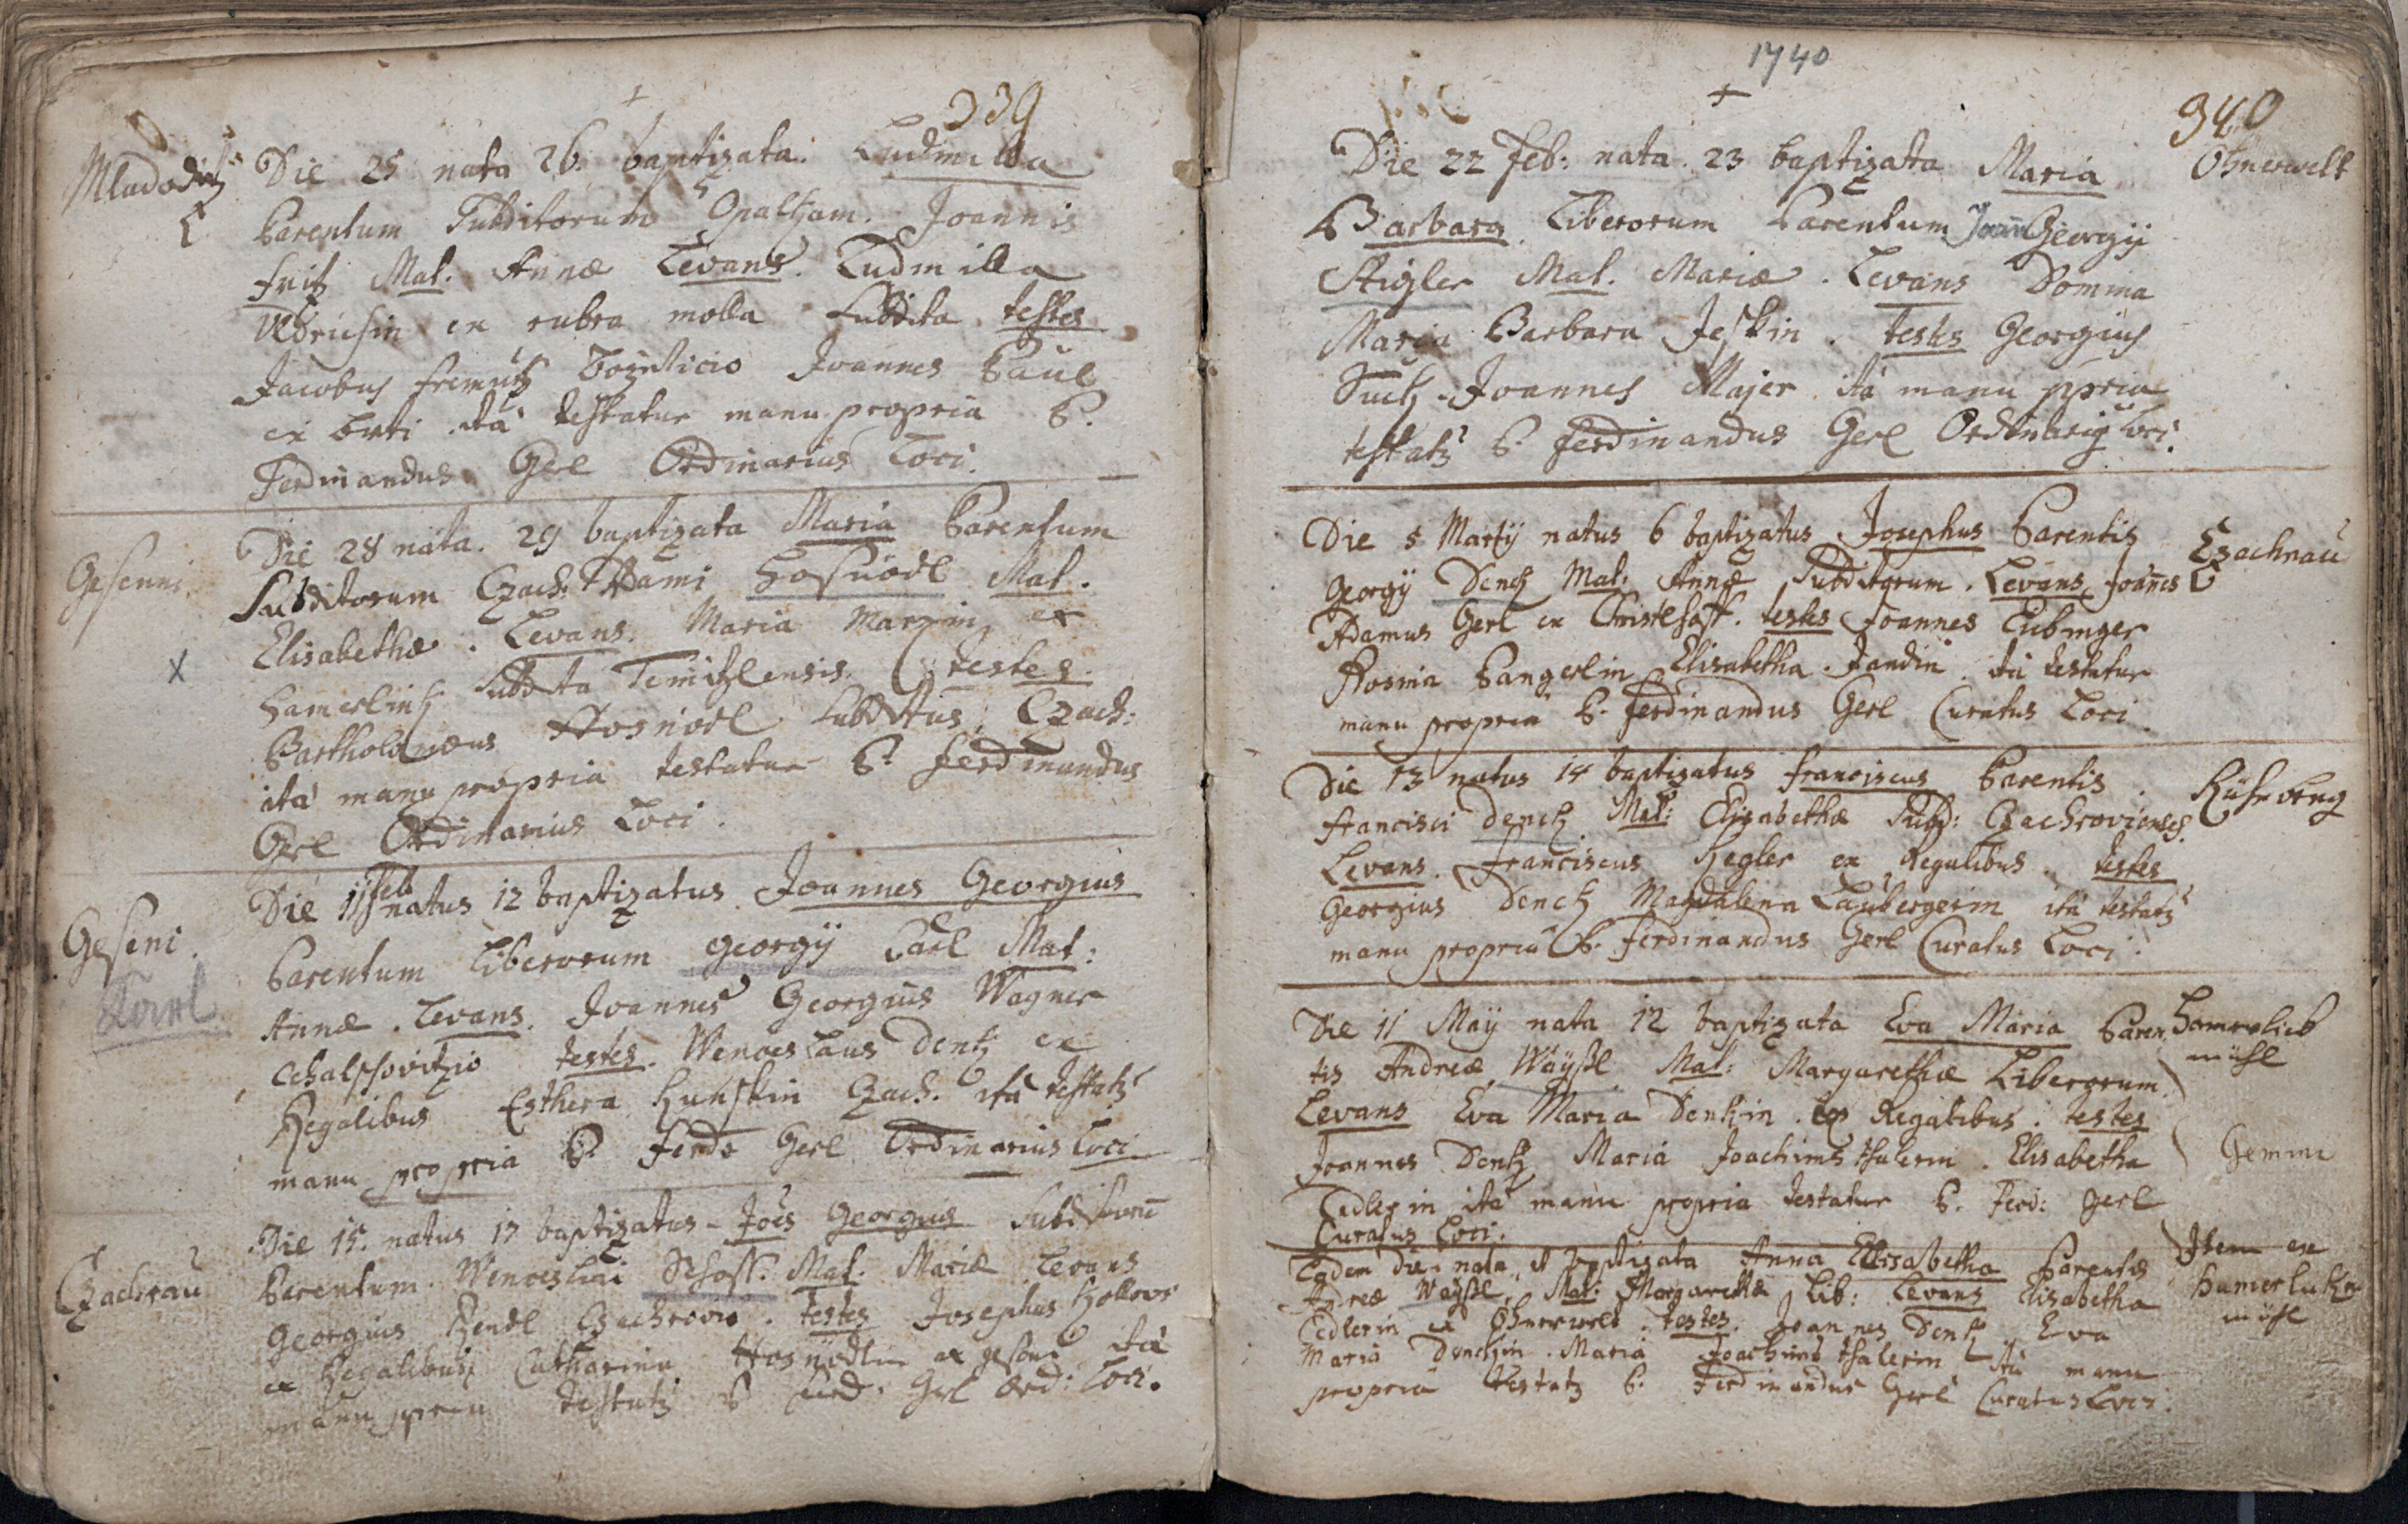 339
Mladoditz
Die 25 nata 26. baptizata. Ludmilla
Parentum Subditorum Opaltzam. Joannis
Fritz Mat. Annæ Levans. Ludmilla
Udrichin ex rubra molla Subdita testes
Jacobus Fremutz Joannes Paul
ex ita testatur manu propria P.
Ferdinandus Gerl Ordinarius Loci.
Gesenni.
Die 28 nata. 29 baptizata Maria Parentum
Subditorum Czach: Adami Hosnödl Mat.
Elisabethæ. Levans. Maria Marxin ex
Hamerlinkh Subdita Temitzlensis. testes.
Bartholomæus Hosnödl Subditus Czach:
ita manu propria testatur P. Ferdinandus
Gerl Ordinarius Loci.
Geseni.
Karl
Die 11 Feb natus 12 baptizatus Joannes Georgius
Parentum Liberorum Georgij Carl Mat:
Annæ. Levans. Joannes Georgius Wagner
testes. Wenceslaus Dentz ex
Regalibus Esthera Czach. ita testatz
manu propria P. Ferd. Gerl Ordinarius Loci
Czachrau
Die 15. natus 17 baptizatus - Joes Georgius Subditorum
Parentum. Wenceslai Schoff. Mat. Mariæ Levans
Georgius Czachrovio. testes Josephus
ex Regalibus, Catharina Hosnödlin ex geseni ita
manu ppria testatz P Ferd. Gerl Ord: Loci.
1740
340
Ohnerwelt
Die 22 Feb: nata. 23 baptizata Maria
Barbara. Liberorum Parentum Joan Georgij
Stigler Mat. Mariæ. Levans Domma
Maria Barbara Jeskin. testes Georgius
Suetz. Joannes Majer ita manu ppria
testatz P. Ferdinandus Gerl Ordinariq Loci.
Czachrau
Die 5 Martij natus 6 baptizatus Josephus Parentis
Georgij Dentz Mat: Annæ Subditorum. Levans Joañes
Adamus Gerl ex Christlhoff. testes Joannes Eubinger
Rosina Pangerlin Elisabetha. Jandin. ita testatur
manu propria P. Ferdinandus Gerl Curatus Loci
Die 13 natus 14 baptizatus Franciscus Parentis
Francisci Dentz Mat: Elisabethæ Subd: Czachroviensis.
Levans. Franciscus Kegler ex Regalibus. testes
Georgius Dentz Magdalena Laubergerin ita testatz
manu propria P. Ferdinandus Gerl Curatus Loci.
Die 11 Maij nata 12 baptizata Eva Maria Paren
Hamerlick
mühl
tis Andreæ Wäyßl Mat: Margarethæ Liberorum.
Levans Eva Maria Denkin. ex Regalibus. testes
Joannes Dentz Maria Joachimsthalerin. Elisabetha
Gemini
Cedlerin ita manu propria testatur P. Ferd: Gerl
Curatus Loci.
Eadem Die nata et baptizata Anna Elisabetha Parentis
Item ex
Hamerlukin
mühl
Andreæ Wäyßl. Mat: Margarethæ Lib: Levans Elisabetha
Cedlerin ex Ohnerwelt. testes. Joannes Dentz Eva
Maria Denckin. Maria Joachimsthalerin ita manu
propria testatz P. Ferdinandus Gerl Curatus Loci.